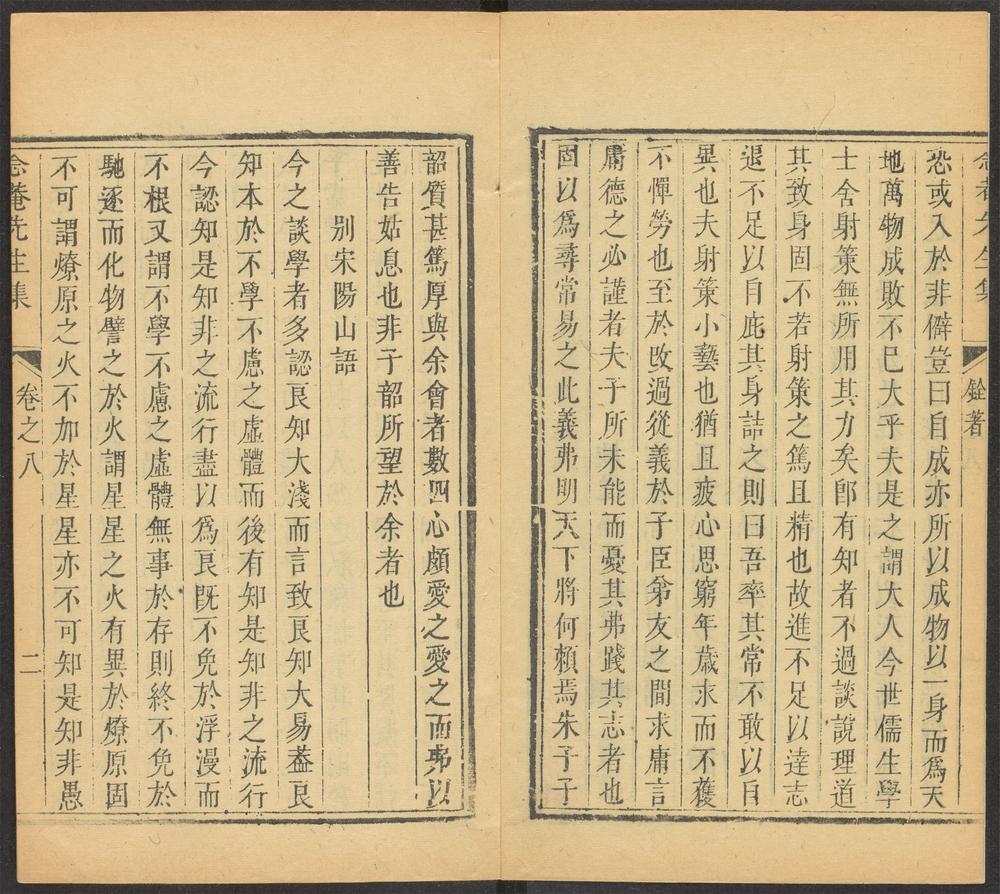 念菴先生集 銓著
恐或入於非僻豈曰自成亦所以成物以一身而爲天
地萬物成敗不已大乎夫是之謂大人今世儒生學
士舍射策無所用其力矣卽有知者不過談說理道
其致身固不若射策之篤且精也故進不足以達志
退不足以自庇其身詰之則曰吾率其常不敢以自
異也夫射策小藝也猶且疲心思窮年歲求而不獲
不憚勞也至於改過從義於子臣弟友之間求庸言
庸德之必謹者夫子所未能而憂其弗踐其志者也
固以爲尋常易之此義弗明天下將何賴焉朱子子
韶質甚篤厚與余會者數四心頗愛之愛之而弗以
善告姑息也非子韶所望於余者也
別宋陽山語
今之談學者多認良知大淺而言致良知大易葢良
知本於不學不慮之虛體而後有知是知非之流行
今認知是知非之流行盡以爲良旣不免於浮漫而
不根又謂不學不慮之虛體無事於存則終不免於
馳逐而化物譬之於火謂星星之火有異於燎原固
不可謂燎原之火不加於星星亦不可知是知非愚
念菴先生集 卷之八 二